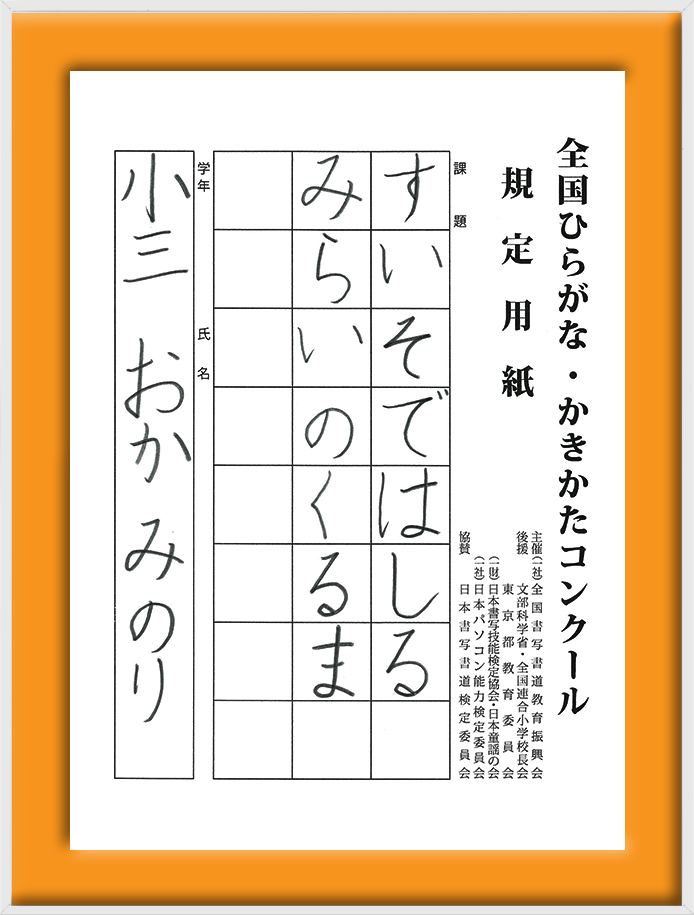 全国ひらがな・かきかたコンクール
規定用紙
主催 (一社)全国書写書道教育振興会
後援 文部科学省・全国連合小学校長会
東京都教育委員会
(一財)日本書写技能検定協会・日本童謡の会
(一社)日本パソコン能力検定委員会
協賛 日本書写書道検定委員会
課題
すいそではしる
みらいのくるま
学年 氏名
小三 おか みのり